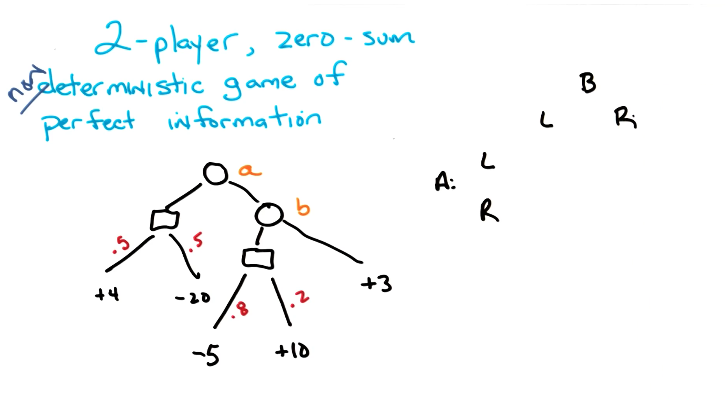 2-player, zero-sum
non deterministic game of
perfect information
B
L R
A: L
R
a
b
.5 .5
+4 -20
.8 .2
+3
-5 +10